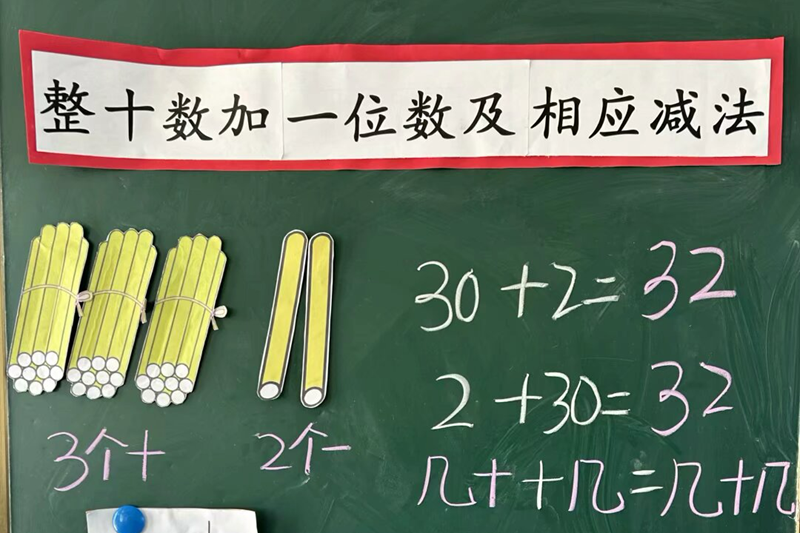 整十数加一位数及相应减法
30+2=32
2+30=32
3个十 2个一
几十+几=几十几